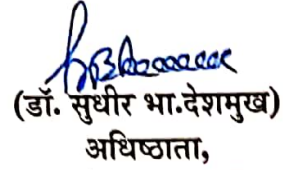 (डॉ. सुधीर भा.देशमुख)
अधिष्ठाता,